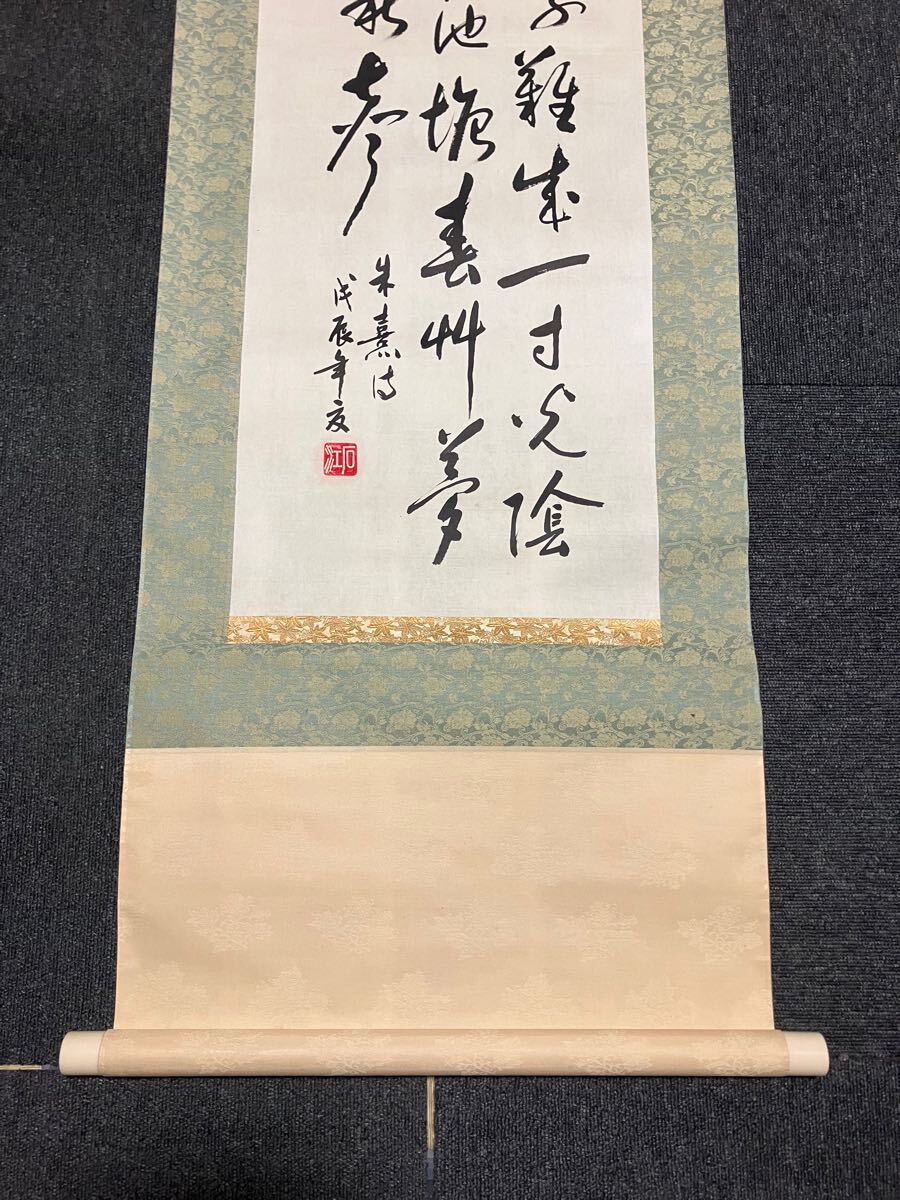 難成一寸光陰
池塘春艸夢
秋聲
朱熹詩
戊辰年夏
石江